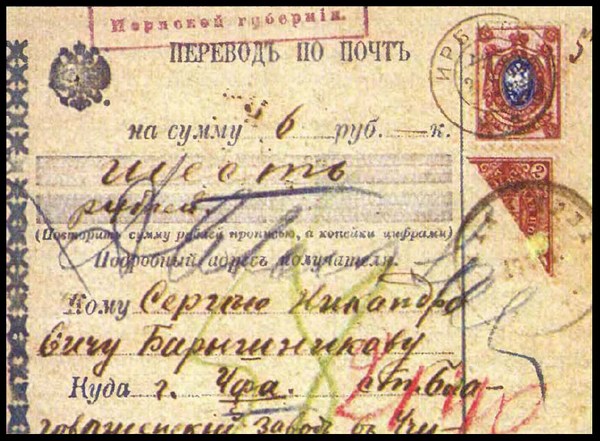 Пермской губерніи.
ПЕРЕВОДЪ ПО ПОЧТЪ
ИРБИТ
на сумму 6 руб. — к.
шесть
рублей
(Повторить сумму рублей прописью, а копейки цифрами)
Подробный адресъ получателя.
Кому Сергѣю Никандро
вичу Барышникову
Куда г. Уфа. ст. Бла
говѣщенскій заводъ въ